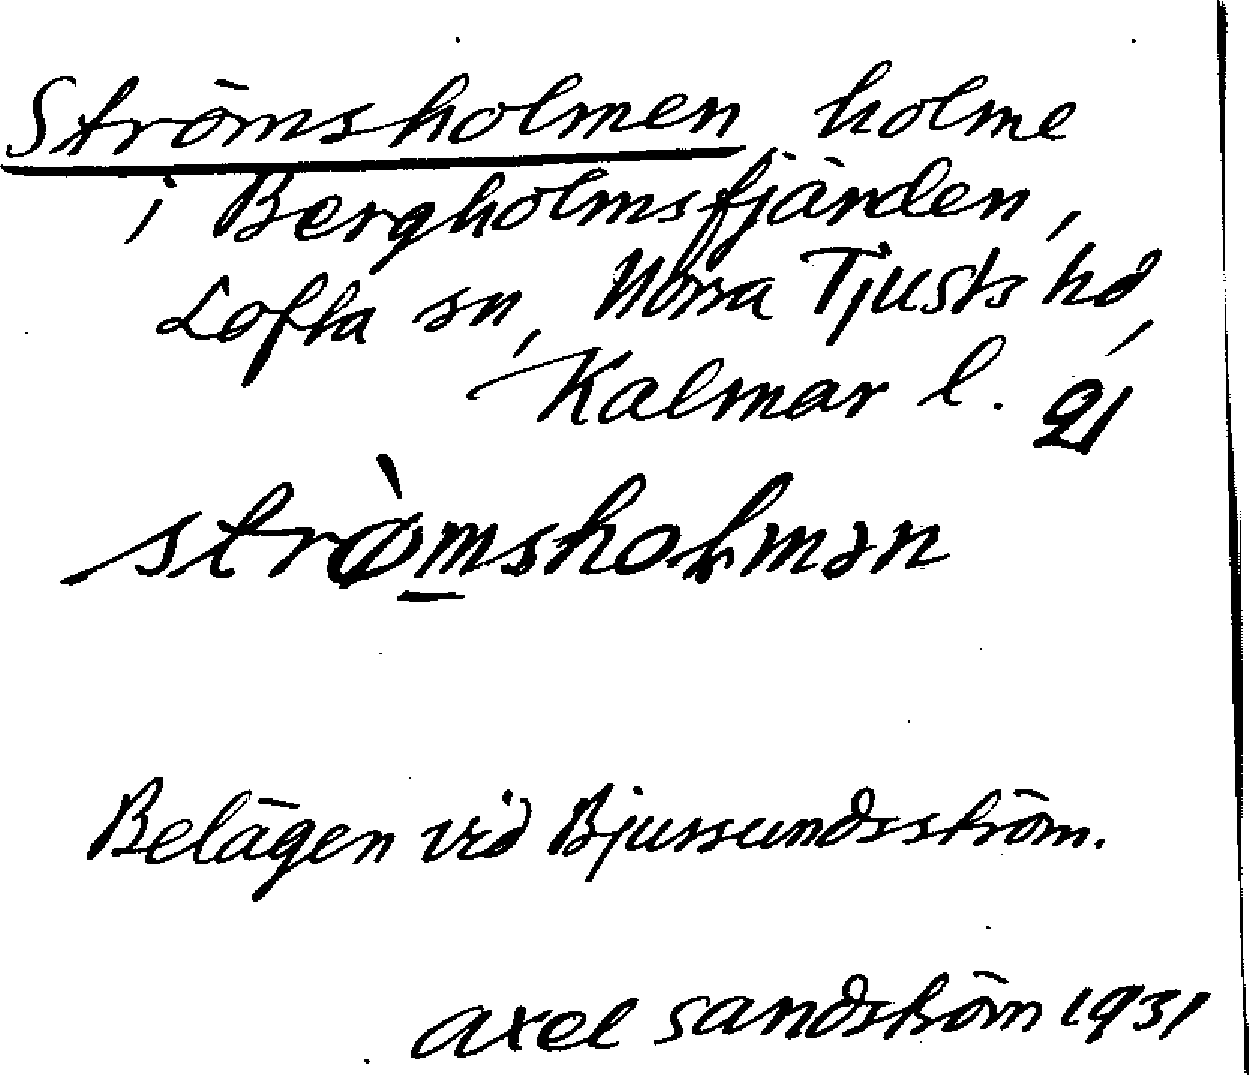 Strömsholmen holme
i Bergholmsfjärden,
Lofta sn, Norra Tjusts hd,
Kalmar l. 21
strø̀msholmən
Belägen vid Bjussundsström.
Axel Sandström 1931